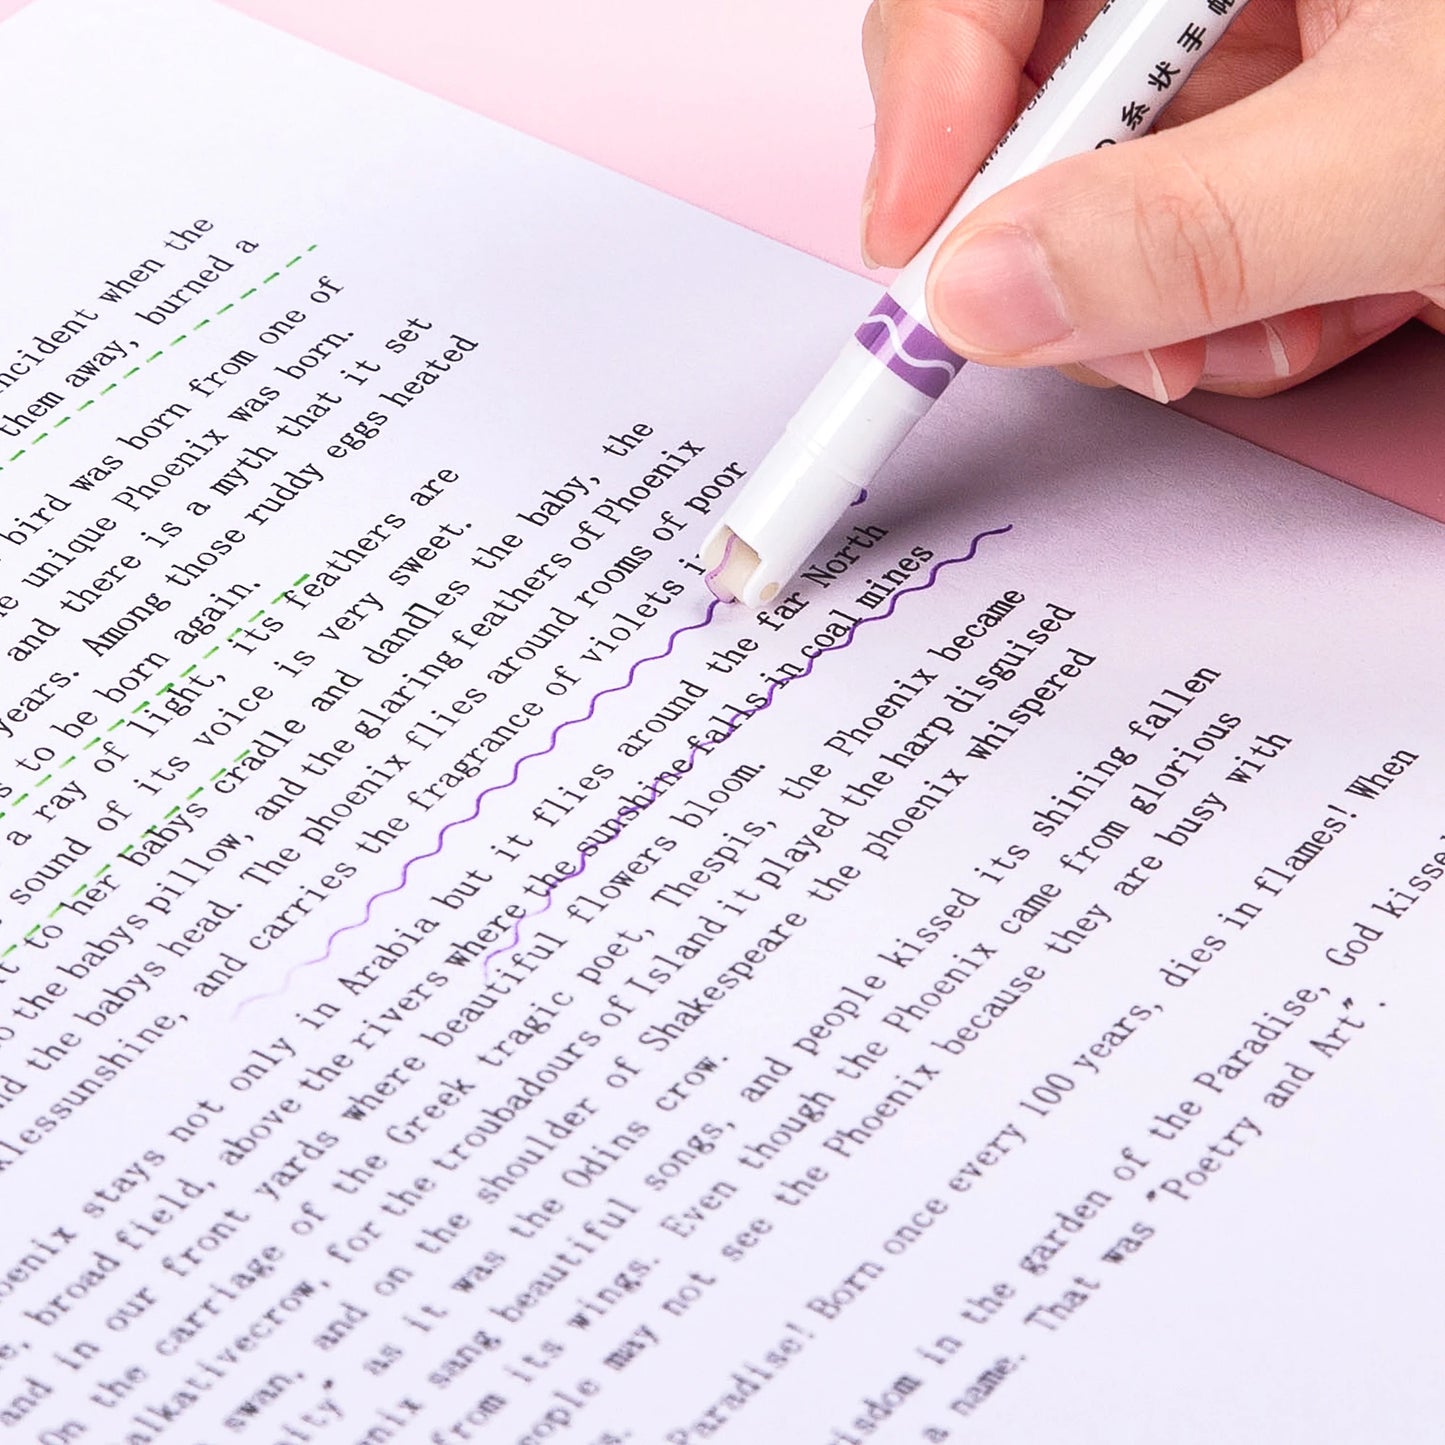 糸状手帐
incident when the
them away, burned a
bird was born from one of
unique Phoenix was born.
and there is a myth that it set
years. Among those ruddy eggs heated
to be born again.
a ray of light, its feathers are
sound of its voice is very sweet.
to her babys cradle and dandles the baby, the
the babys pillow, and the glaring feathers of Phoenix
the babys head. The phoenix flies around rooms of poor
sunshine, and carries the fragrance of violets
stays not only in Arabia but it flies around the far North
broad field, above the rivers where the sunshine falls in coal mines
and in our front yards where beautiful flowers bloom.
On the carriage of the Greek tragic poet, Thespis, the Phoenix became
talkativecrow, for the troubadours of Island it played the harp disguised
swan, and on the shoulder of Shakespeare the phoenix whispered
as it was the Odins crow.
sang beautiful songs, and people kissed its shining fallen
from its wings. Even though the Phoenix came from glorious
may not see the Phoenix because they are busy with
Paradise! Born once every 100 years, dies in flames! When
in the garden of the Paradise, God kissed
a name. That was "Poetry and Art".